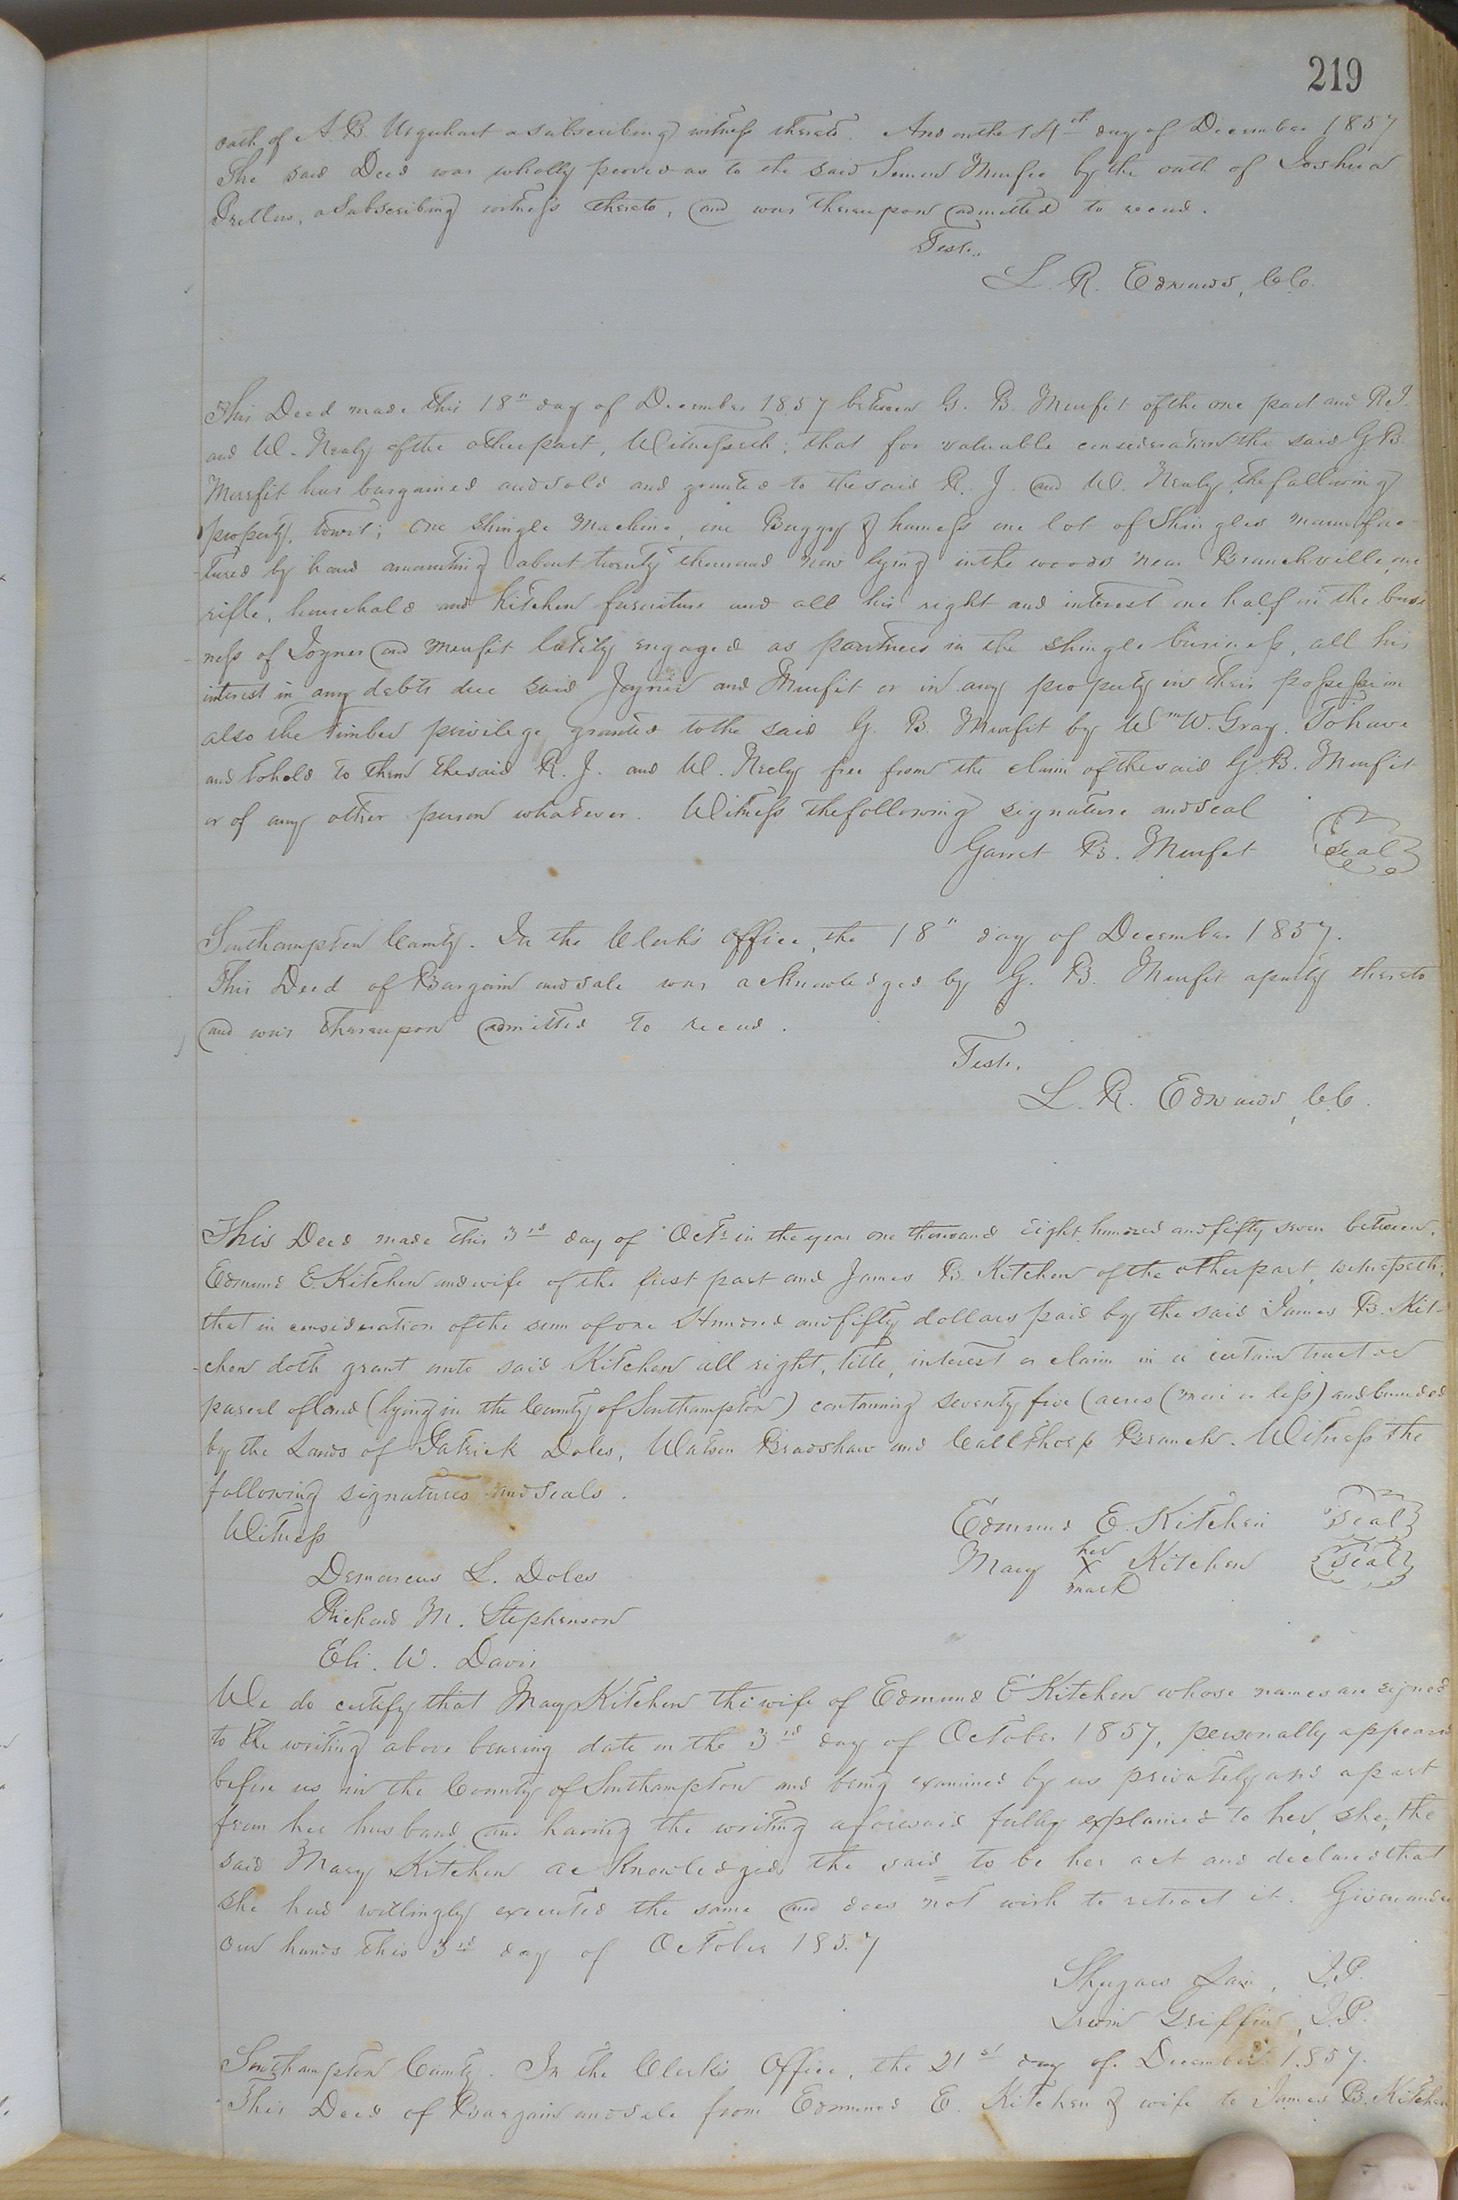 219
oath of A. B. Urquhart a subscribing witness thereto. And on the 14th day of December 1857
The said Deed was wholly proved as to the said Murfee by the oath of Joshua
Pretlow, a Subscribing witness thereto, and was thereupon admitted to record.
Teste.
L. R. Edwards, C.C.
This Deed made this 18" day of December 1857 between G. B. Murfit of the one part and R. J.
and W. Nealy of the other part, Witnesseth; that for valuable consideration the said G B
Murfit has bargained and sold and granted to the said R. J. and W. Nealy, the following
property, towit; One Shingle Machine, one Buggy & harness one lot of Shingles manufac-
tured by hand amounting about twenty thousand now lying in the woods near Branchville, one
rifle, household and kitchen furniture and all his right and interest one half in the busi
ness of Joyner and Murfit lately engaged as partners in the shingle business, all his
interest in any debts due said Joyner and Murfit or in any property in their possession
also the timber privilege granted to the said G. B. Murfit by Wm W. Gray. To have
and to hold to them the said R. J. and W. Neely free from the claim of the said G. B. Murfit
or of any other person whatever. Witness the following signature and seal
Garret B. Murfit Seal
Southampton County. In the Clerk's office, the 18" day of December 1857.
This Deed of Bargain and sale was acknowledged by G. B. Murfit a party thereto
and was thereupon admitted to record.
Teste.
L. R. Edwards, C.C.
This Deed made this 3rd day of Octr in the year one thousand eight hundred and fifty seven between,
Edmund E. Kitchen and wife of the first part and James B. Kitchen of the other part, witnesseth;
that in consideration of the sum of one Hundred and fifty dollars paid by the said James B. Kit-
chen doth grant unto said Kitchen all right, title, interest or claim in a certain tract or
parcel of land (lying in the County of Southampton) containing seventy five (acres (more or less) and bounded
by the Lands of Patrick Doles, Watson Bradshaw and Callthorp Branch. Witness the
following signatures and seals.
Witness
Edmund E. Kitchen Seal
Mary her X mark Kitchen Seal
Demarcus L. Doles
Richard M. Stephenson
Eli. W. Davis
We do certify that Mary Kitchen the wife of Edmund E Kitchen whose names are signed
to the writing above bearing date on the 3rd day of October 1857, personally appeared
before us in the County of Southampton and being examined by us privately and apart
from her husband and having the writing aforesaid fully explained to her, she, the
said Mary Kitchen acknowledged the said to be her act and declared that
she had willingly executed the same and does not wish to retract it. Given under
our hands this 3rd day of October 1857
Shugars Lain, J.P.
Irwin Griffin, J.P.
Southampton County. In the Clerk's Office, the 21st day of December 1857.
This Deed of Bargain and sale from Edmund E. Kitchen & wife to James B. Kitchen